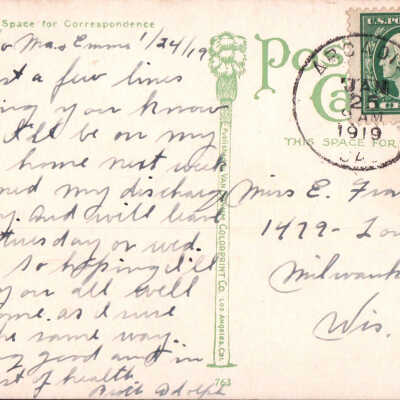 Space for Correspondence
Mrs Emma 1/24/19
st a few lines
ing you know
I'll be on my
home next week
ned my discharge
y. and will leave
Tuesday or wed.
so hoping I'll
you all well
ome. as I sure
he same way.
ng good and in
st of health
Adolph
PUBLISHED BY VAN ORNUM COLORPRINT CO. LOS ANGELES, CAL.
763
Pos
Ca
THIS SPACE FOR
U.S. POS
ARCADIA
JAN
2
9 AM
1919
CAL
Miss E. Fra
1479- Lou
Milwauk
Wis.